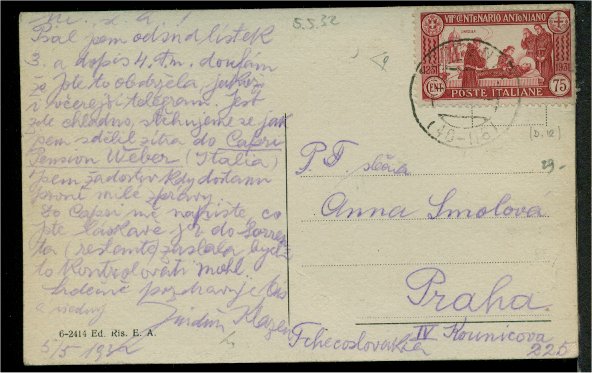 Psal jsem odsud lístek
3. a dopis 4. t.m. doufám
že jste to obdržela jakož
i včerejší telegram. Jest
zde chladno, stěhujeme se jak
jsem sdělil zítra do Capri
Pension Weber (Italia)
jsem žádostiv kdy dostanu
první milé zprávy
Do Capri mě napište, co
jste laskavě již do Sorren-
ta (restante) zaslala bych
to kontrolovati mohl.
Srdečně pozdravuje Vás
6-2414 Ed. Ris. E. A.
5/5 1932
5.5.32
VII° CENTENARIO ANTONIANO
1231
1931
CENT.
75
POSTE ITALIANE
[D. 12]
29.-
P.T. slečna
Anna Smolová
Praha
IV Kounicova
225
Tchecoslovakia